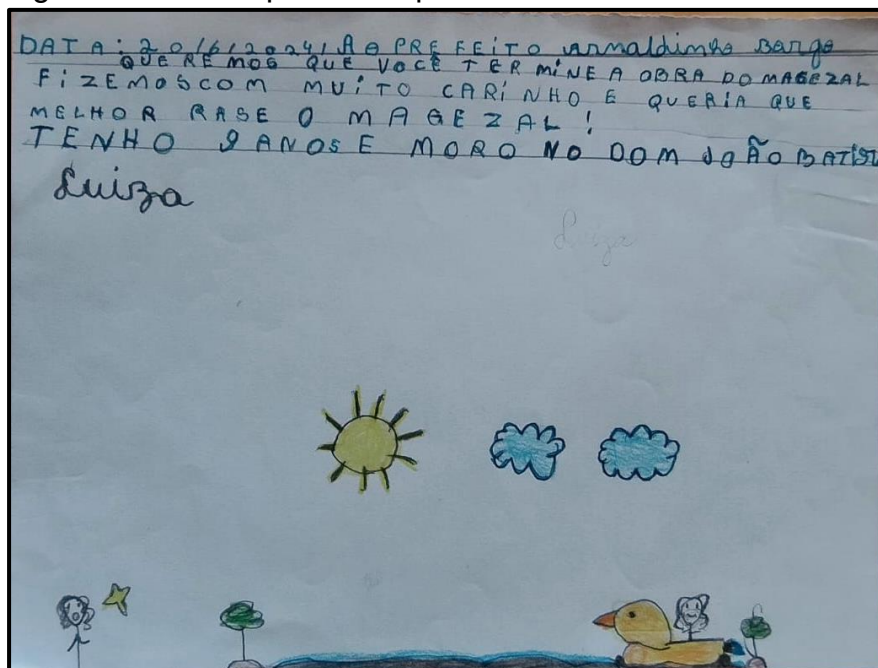 DATA: 20/6/2024/ AO PREFEITO Arnaldinho Borgo
QUEREMOS QUE VOCÊ TERMINE A OBRA DO MAGEZAL
FIZEMOS COM MUITO CARINHO E QUERIA QUE
MELHOR RASE O MAGEZAL!
TENHO 9 ANOS E MORO NO DOM JOÃO BATISTA
Luiza
Luiza